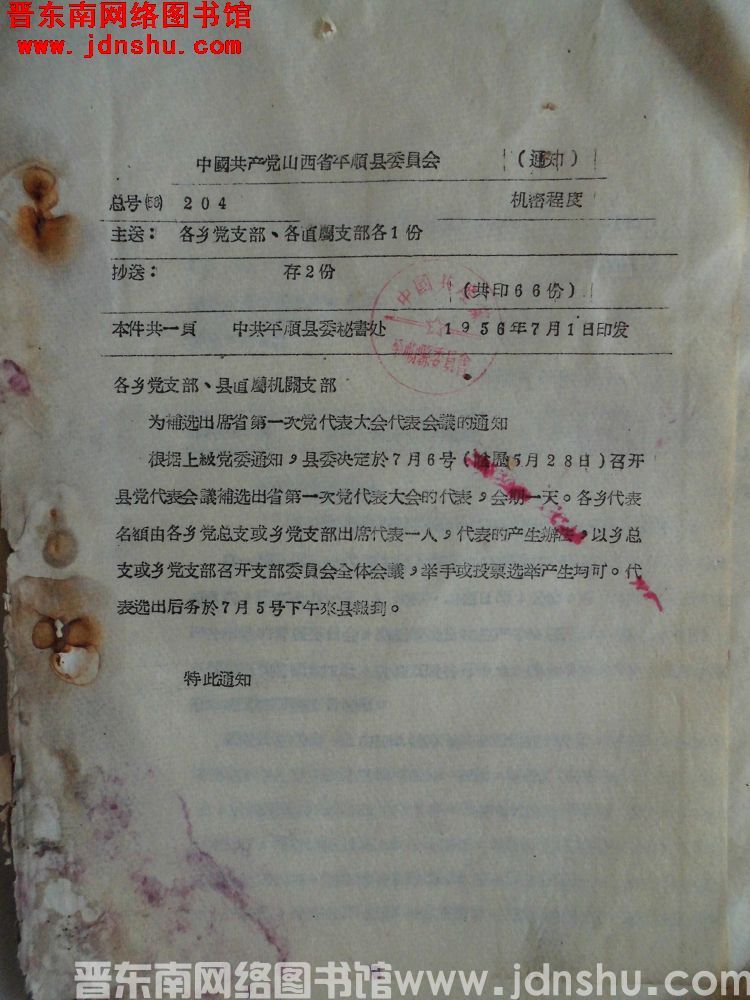 晋东南网络图书馆
www.jdnshu.com
中國共产党山西省平順县委員会 （通知）
总号(56) 204 机密程度
主送： 各乡党支部、各直屬支部各1份
抄送： 存2份
（共印66份）
本件共一頁 中共平順县委秘書处 1956年7月1日印发
中國共
各乡党支部、县直屬机関支部
为補选出席省第一次党代表大会代表会議的通知
根据上級党委通知，县委决定於7月6号（農歷5月28日）召开
县党代表会議補选出省第一次党代表大会的代表，会期一天。各乡代表
名額由各乡党总支或乡党支部出席代表一人，代表的产生辦法，以乡总
支或乡党支部召开支部委員会全体会議，举手或投票选举产生均可。代
表选出后务於7月5号下午來县報到。
特此通知
晋东南网络图书馆 www.jdnshu.com